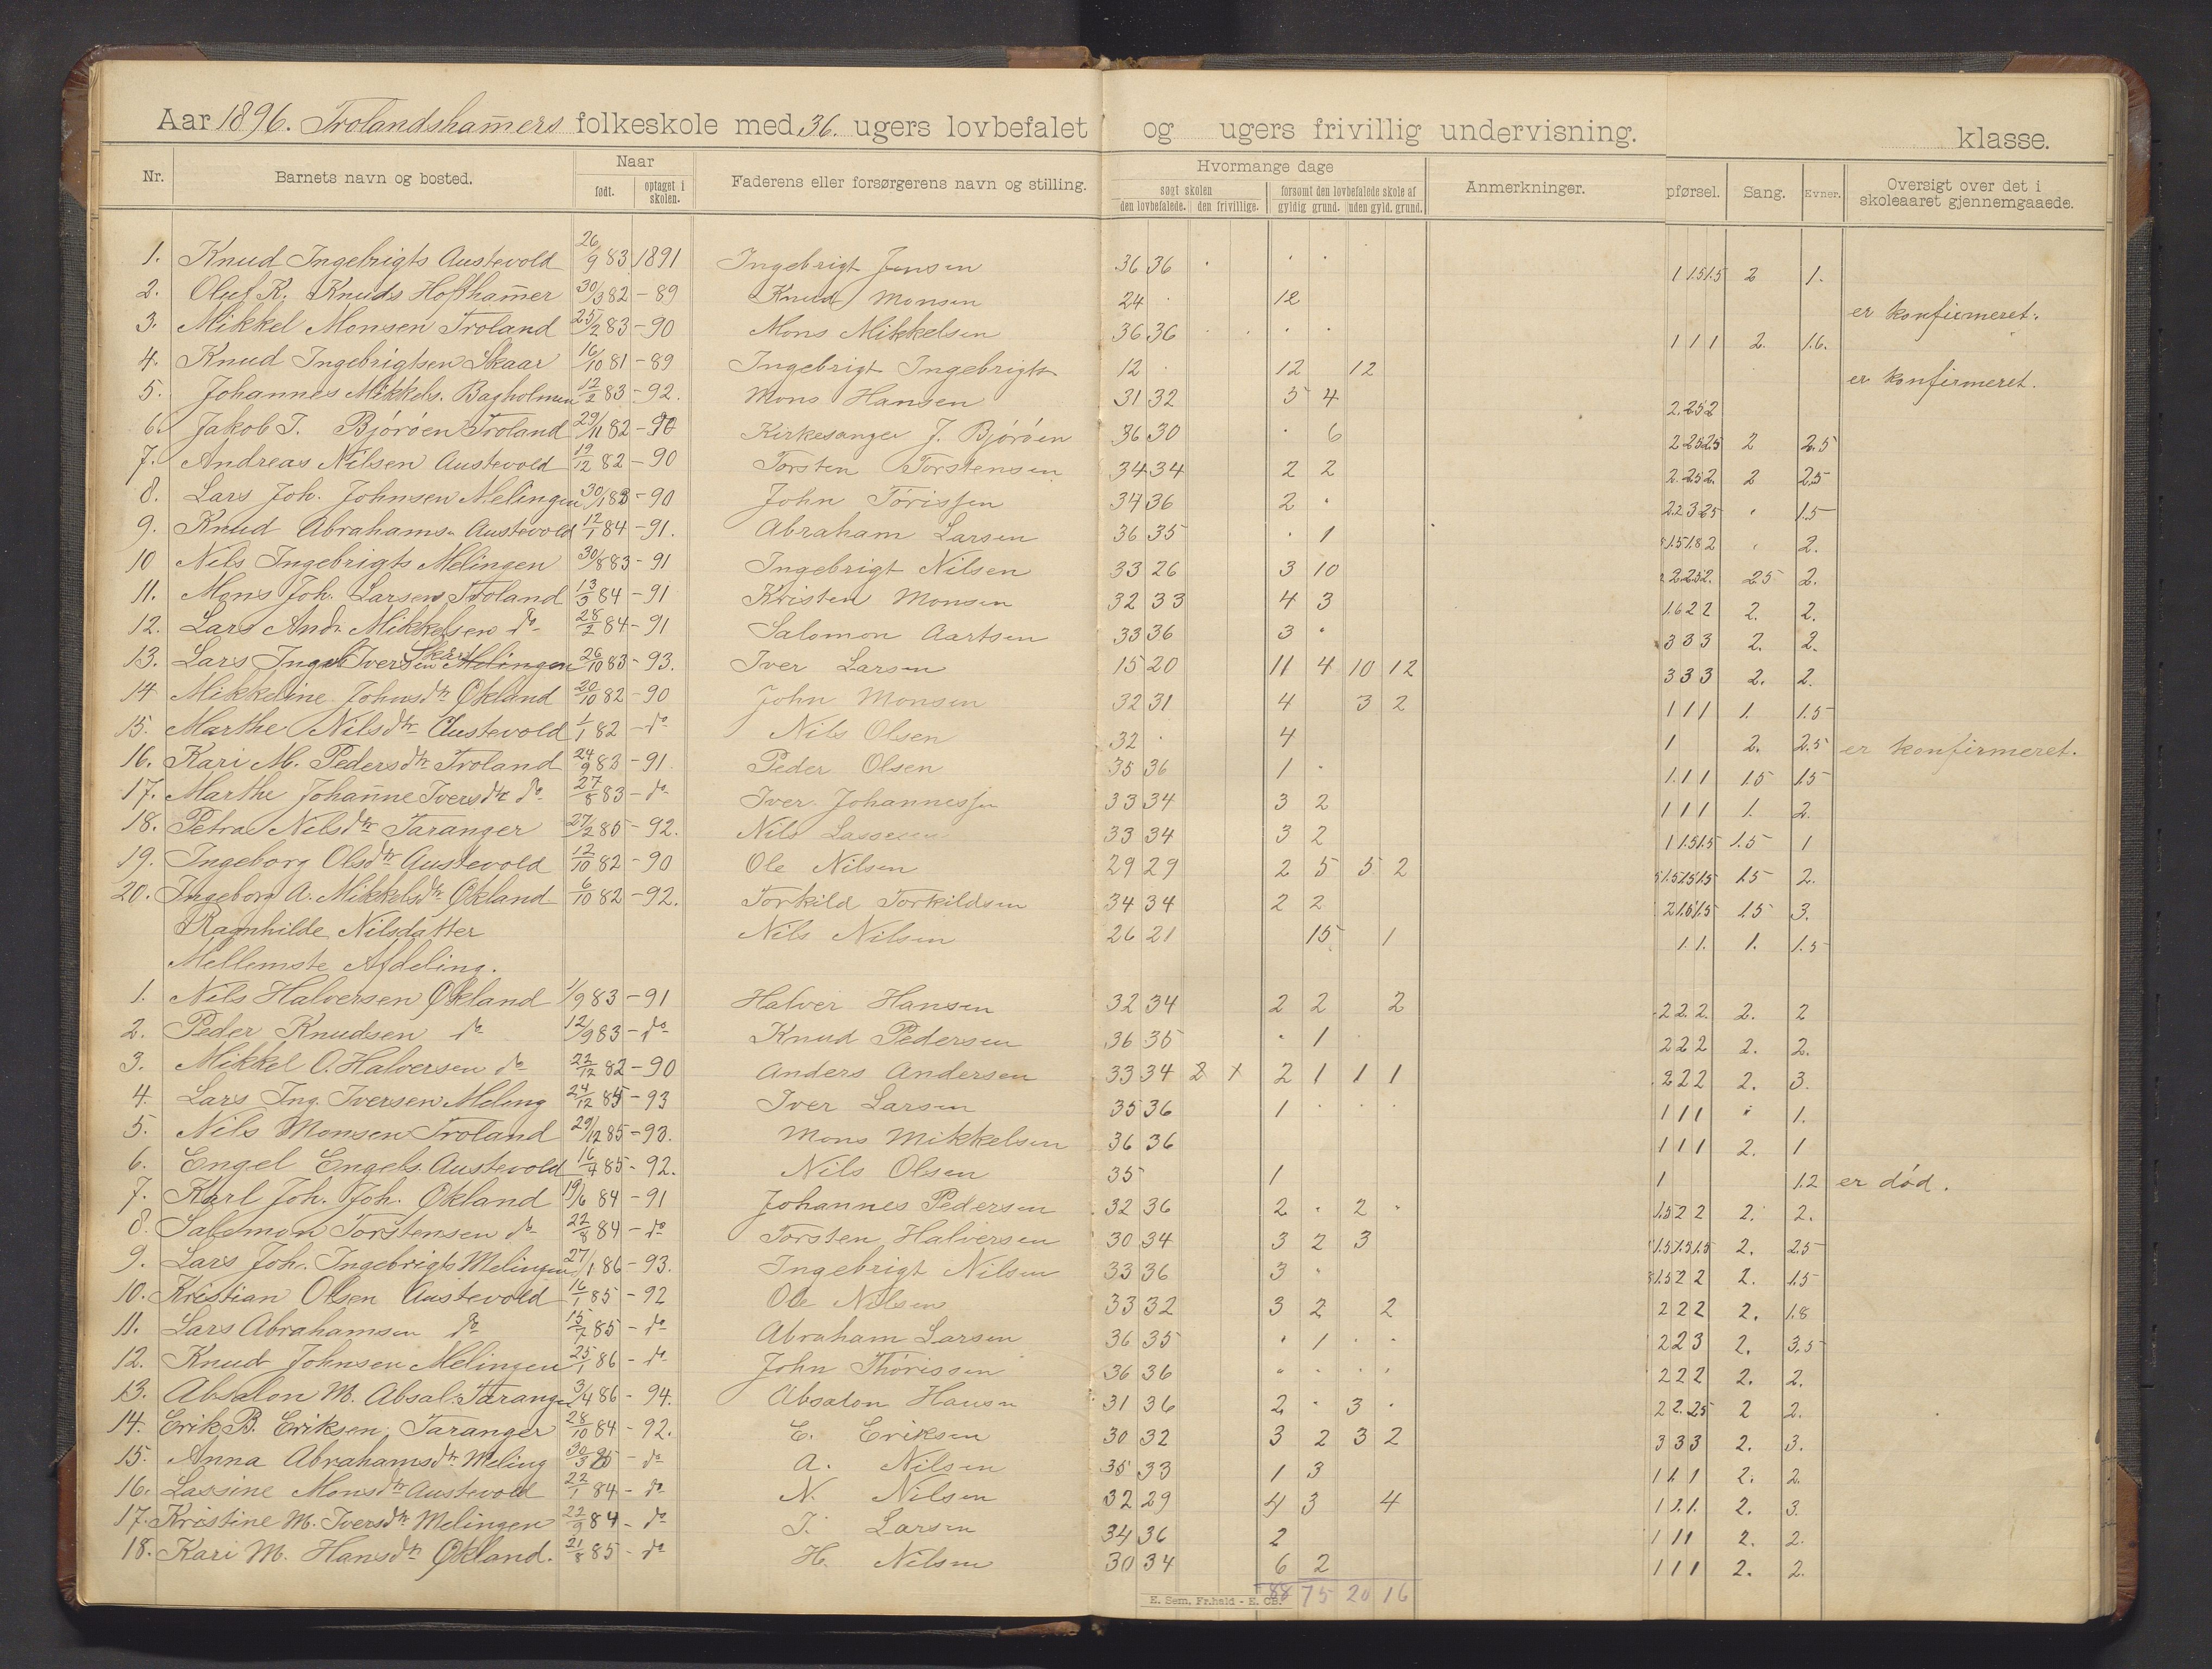 Aar 1896. Trolandshamers folkeskole med 36. ugers lovbefalet og ugers frivillig undervisning. klasse.
Nr. Barnets navn og bosted. Naar født. optaget i skolen. Faderens eller forsørgerens navn og stilling. Hvormange dage søgt skolen den lovbefalede. den frivillige. forsømt den lovbefalede skole af gyldig grund. uden gyld. grund. Anmerkninger. pførsel. Sang. Evner. Oversigt over det i skoleaaret gjennemgaaede.
1. Knud Ingebrigts Austevold 26/9 83 1891 Ingebrigt Jensen 36 36 1 1.5 1.5 2 1.
2. Oluf K. Knuds Hofthamer 30/3 82 - 89 Knud Monsen 24 12 er konfirmeret.
3. Mikkel Monsen Troland 25/2 83 - 90 Mons Mikkelsen 36 36 1 1 1 2. 1.6.
4. Knud Ingebrigtsen Skaar 16/10 81 - 89 Ingebrigt Ingebrigts 12 12 12 er konfirmeret.
5. Johannes Mikkels. Bagholmen 12/2 83 - 92. Mons Hansen 31 32 5 4 2. 2.5 2
6. Jakob J. Bjørøen Troland 29/11 82 - 90 Kirkesanger J. Bjørøen 36 30 6 2 2.5 2.5 2 2.5
7. Andreas Nilsen Austevold 19/12 82 - 90 Torsten Torstensen 34 34 2 2 2. 2.5 2. 2 2.5
8. Lars Joh. Johnsen Melingen 30/1 83 - 90 John Tørissen 34 36 2 2.2 3 2.5 1.5
9. Knud Abrahams. Austevold 12/1 84 - 91. Abraham Larsen 36 35 1 1.5 1.8 2 2.
10 Nils Ingebrigts Melingen 30/8 83 - 91 Ingebrigt Nilsen 33 26 3 10 2 2.5 2. 2.5 2.
11. Mons Joh. Larsen Troland 13/3 84 - 91 Kristen Monsen 32 33 4 3 1.6 2 2 2. 2.
12. Lars Andr. Mikkelsen do 28/2 84 - 91 Salomon Aartsen 33 36 3 3 3 3 2. 2.
13. Lars Ingebr Iversen Melingen 26/10 83 - 93. Iver Larsen 15 20 11 4 10 12 3 3 3 2. 2.
14 Mikkeline Johnsdtr Økland 20/10 82 - 90 John Monsen 32 31 4 3 2 1 1 1 1. 1.5
15. Marthe Nilsdtr Austevold 1/1 82 - do Nils Olsen 32 4 1 2. 2.5 er konfirmeret.
16. Kari M. Pedersdtr Troland 24/9 83 - 91 Peder Olsen 35 36 1 1. 1 1 1.5 1.5
17. Marthe Johanne Iversdtr do 27/8 83 - do Iver Johannessen 33 34 3 2 1 1 1 1. 2.
18. Petra Nilsdtr Taranger 27/2 85 - 92. Nils Lassesen 33 34 3 2 1 1.5 1.5 1.5 1
19. Ingeborg Olsdtr Austevold 12/10 82 - 90 Ole Nilsen 29 29 2 5 5 2 1.5 1.5 1.5 1.5 2.
20. Ingeborg A. Mikkelsdtr Økland 6/10 82 - 92. Torkild Torkildsen 34 34 2 2 2 1.5 1.5 1.5 3.
Ragnhilde Nilsdatter Nils Nilsen 26 21 15 1 1. 1. 1. 1.5
Mellemste Afdeling.
1. Nils Halversen Økland 1/9 83 - 91 Halver Hansen 32 34 2 2 2 2 2. 2. 2. 2
2. Peder Knudsen do 12/9 83 - do Knud Pedersen 36 35 1 2 2 2 2. 2.
3. Mikkel O. Halversen do 22/12 82 - 90 Anders Andersen 33 34 2 1 2 1 1 1 2 2 2 2. 3.
4. Lars Ing. Iversen Meling 24/12 85 - 93 Iver Larsen 35 36 1 1 1 1 1.
5. Nils Monsen Troland 29/12 85 - 93. Mons Mikkelsen 36 36 1 1 1 2. 1
6. Engel Engels. Austevold 16/4 85 - 92. Nils Olsen 35 1 1 1.2 er død.
7. Karl Joh. Joh. Økland 19/6 84 - 91 Johannes Pedersen 32 36 2 2 1.5 2 2 2. 2.
8. Salomon Torstensen do 22/8 84 - do Torsten Halversen 30 34 3 2 3 1.5 1.5 1.5 2. 2.5
9. Lars Joh. Ingebrigts Melingen 27/1 86 - 93. Ingebrigt Nilsen 33 36 3 1.5 2 2 2. 1.5
10. Kristian Olsen Austevold 16/1 85 - 92 Ole Nilsen 33 32 3 2 2 2 2 2 2. 1.8
11. Lars Abrahamsen do 15/7 85 - do Abraham Larsen 36 35 1 2 2 3 2. 3.5
12. Knud Johnsen Melingen 25/1 86 - do John Thørissen 36 36 2 2 2 2. 2.
13. Absalon M. Absal. Taranger 3/4 86 - 94. Absalon Hansn 31 36 2 3 2 2. 2.5 2 2.
14. Erik B. Eriksen Taranger 28/10 84 - 92. E. Eriksen 30 32 3 2 3 2 3 3 3 2. 3.
15. Anna Abrahamsdtr Meling 30/3 85 - do A. Nilsen 35 33 1 3 1 1 1 2. 2.
16. Lassine Monsdtr Austevold 22/1 84 - do N. Nilsen 32 29 4 3 4 1 1. 1. 2. 3.
17. Kristine M. Iversdtr Melingen 22/9 84 - do I. Larsen 34 36 2 1 1 1 2. 2.
18. Kari M. Hansdtr Økland. 21/8 85 - do H. Nilsen 30 34 6 2 1 1 1 2. 2.
88 75 20 16
E. Sem, Fr.hald - E. CB.